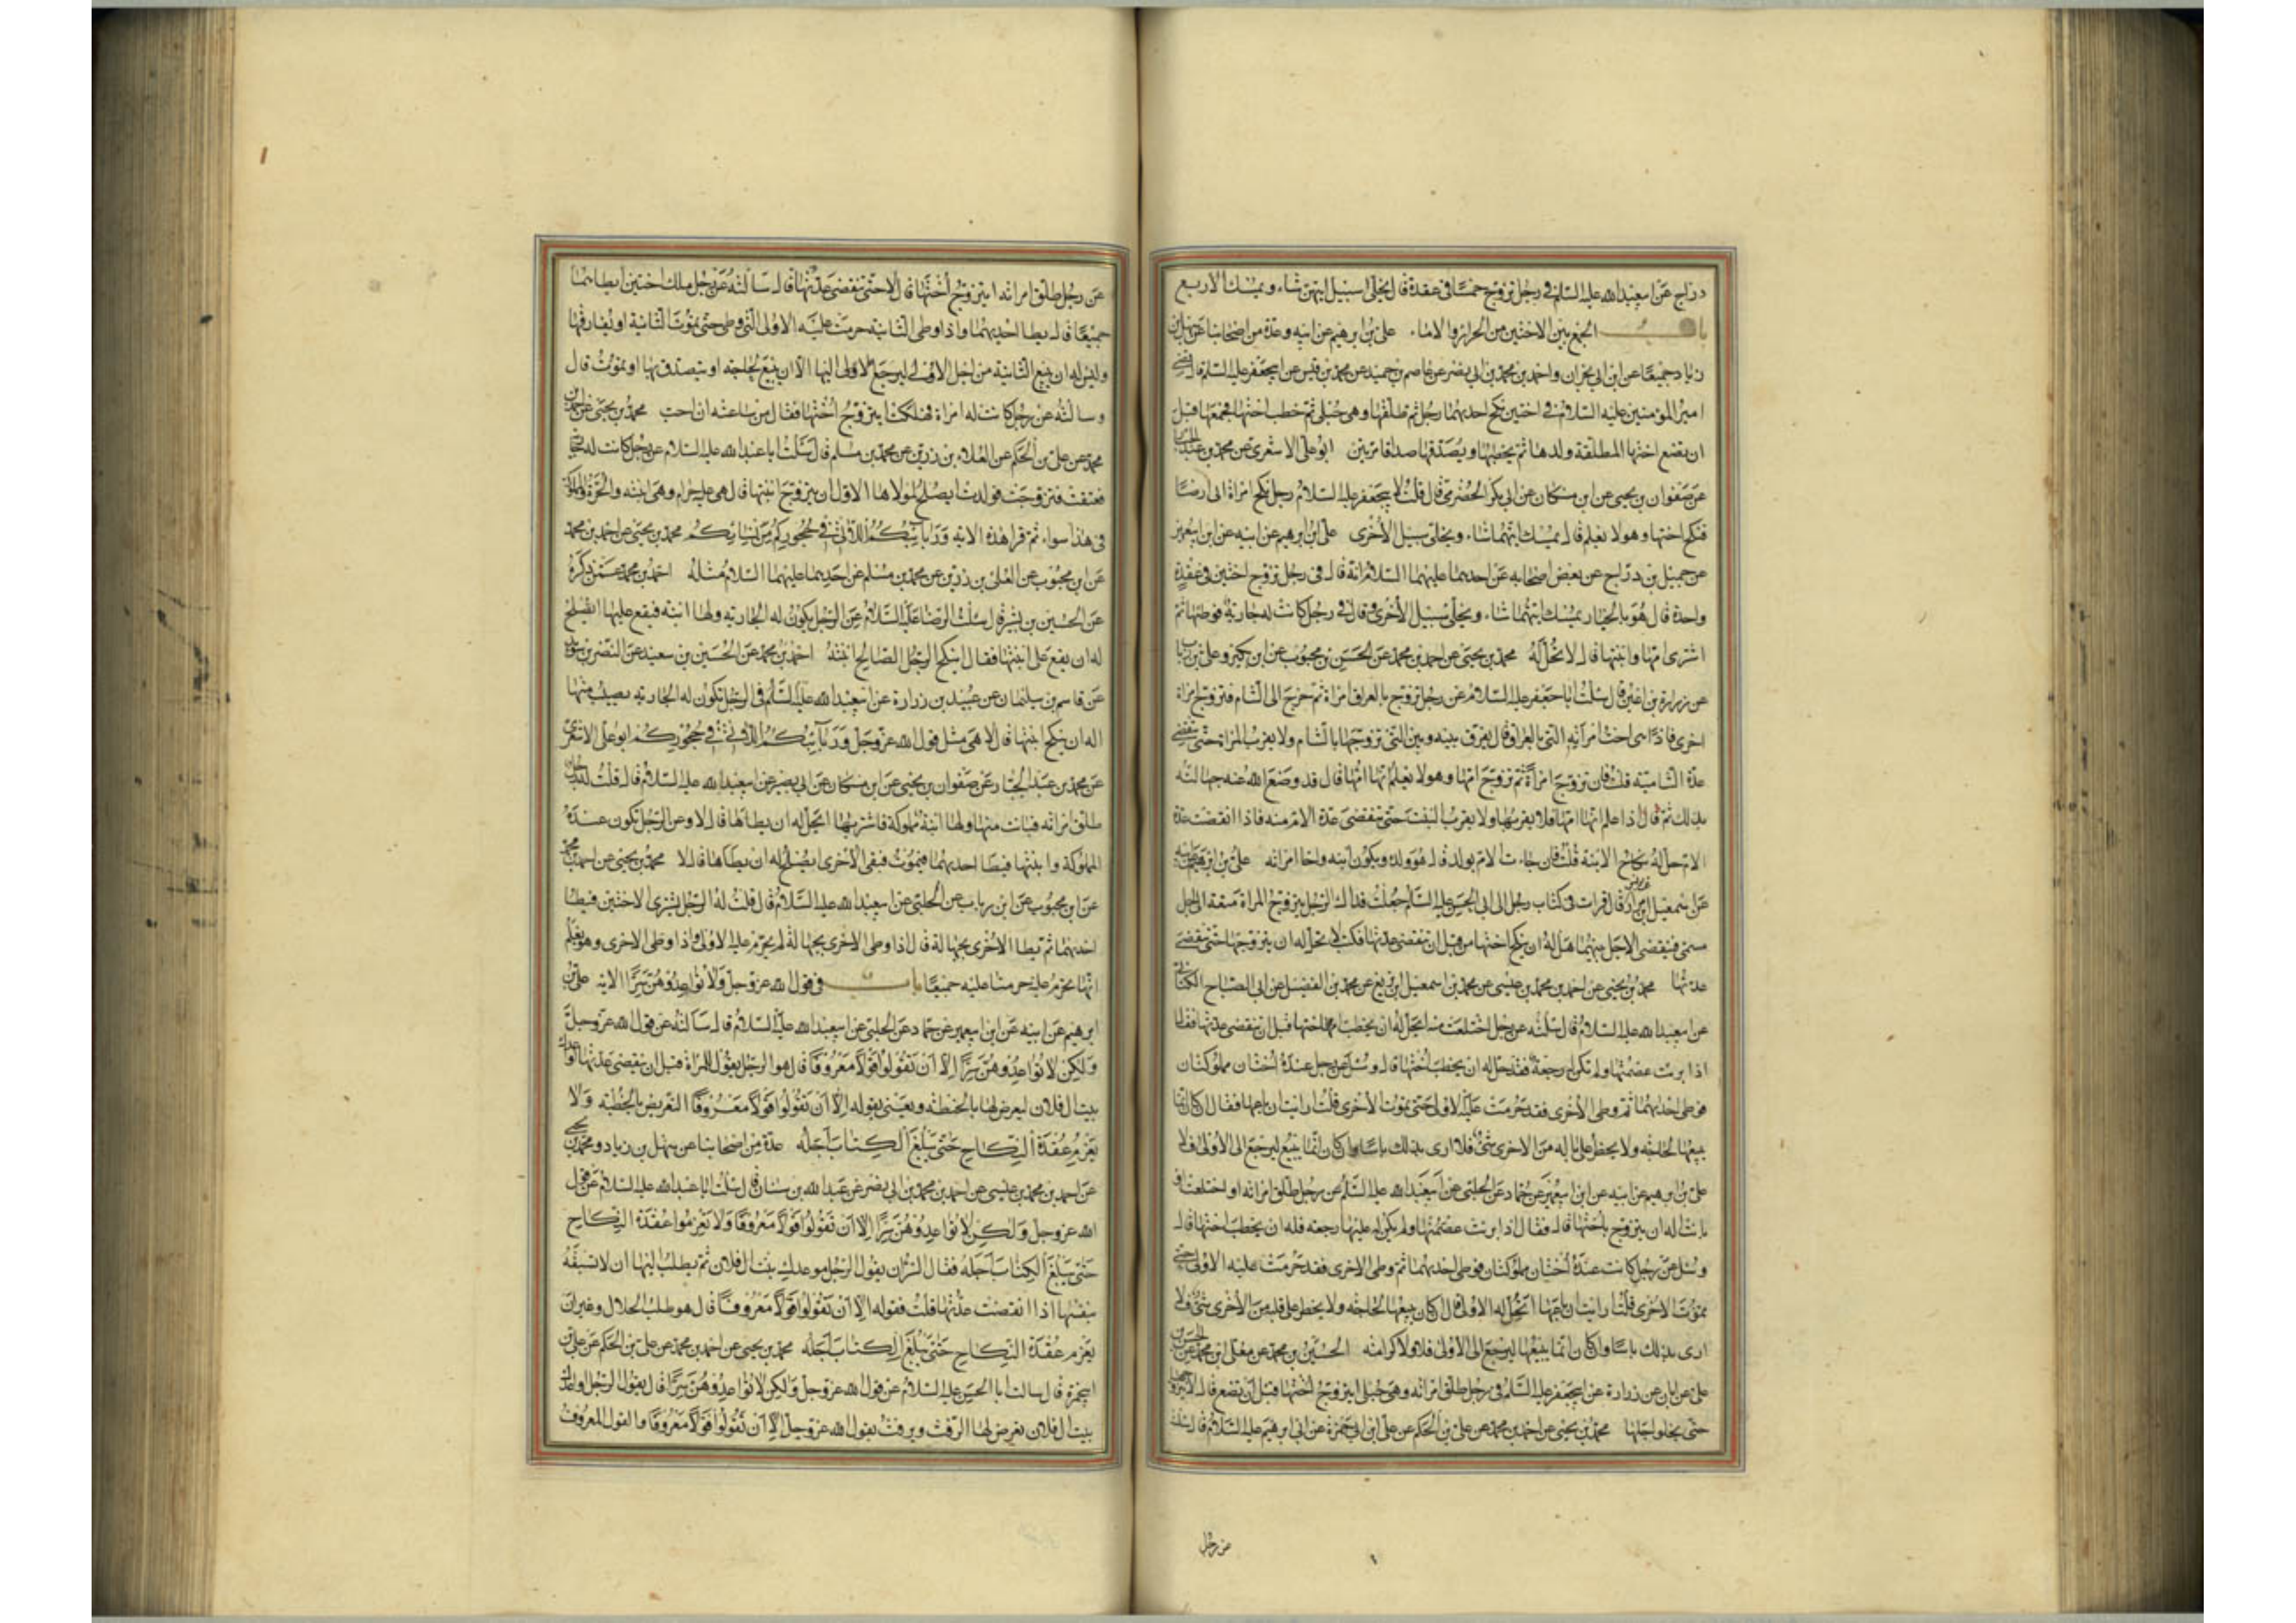 دراج عن ابيعبدالله عليه السلام في رجل تزوج خمسا في عقدة قال يخلي سبيل ايتهن شاء ويمسك الاربع
باب الجمع بين الاختين من الحرائر والاماء علي بن ابرهيم عن ابيه وعدة من اصحابنا عن سهل بن
زياد جميعا عن ابن ابي نجران واحمد بن محمد بن ابي نصر عن عاصم بن حميد عن محمد بن قيس عن ابيجعفر عليه السلم قال قضى
امير المؤمنين عليه السلام في اختين نكح احديهما رجل ثم طلقها وهي حبلى ثم خطب اختها فجمعها قبل
ان تضع اختها المطلقة ولدها ثم يخطبها ويصدقها صداقا مرتين ابو علي الاشعري عن محمد بن عبد الجبار
عن صفوان بن يحيى عن ابن مسكان عن ابي بكر الحضرمي قال قلت لابيجعفر عليه السلام رجل نكح امراة اتى ارضا
فنكح اختها وهو لا يعلم قال يمسك ايتهما شاء ويخلي سبيل الاخرى علي بن ابرهيم عن ابيه عن ابن ابيعمير
عن جميل بن دراج عن بعض اصحابه عن احدهما عليهما السلام انه قال في رجل تزوج اختين في عقدة
واحدة قال هو بالخيار يمسك ايتهما شاء ويخلي سبيل الاخرى وقال في رجل كانت له جارية فوطئها ثم
اشترى امها وابنتها قال لا تحل له محمد بن يحيى عن احمد بن محمد عن الحسن بن محبوب عن ابن بكير وعلي بن رئاب
عن زرارة بن اعين قال سئلت ابا جعفر عليه السلام عن رجل تزوج بالعراق امراة ثم خرج الى الشام فتزوج امراة
اخرى فاذا هي اخت امرأته التي بالعراق قال يفرق بينه وبين التي تزوجها بالشام ولا يقرب المراة حتى تنقضي
عدة الشامية قلت فان تزوج امرأة ثم تزوج امها وهو لا يعلم انها امها قال قد وضع الله عنه جهالته
بذلك ثم قال اذا علم انها امها فلا يقربها ولا يقرب البنت حتى تنقضي عدة الام منه فاذا انقضت عدة
الام حل له نكاح الابنة قلت فان جاءت الام بولد قال هو ولده ويكون ابنه واخا امراته علي بن ابرهيم عن ابيه
عن اسمعيل بن مرار عن يونس قال قرات في كتاب رجل الى ابي الحسن عليه السلم جعلت فداك الرجل يتزوج المراة متعة الى اجل
مسمى فينقضي الاجل بينهما هل له ان ينكح اختها من قبل ان تنقضي عدتها فكتب لا يحل له ان يتزوجها حتى تنقضي
عدتها محمد بن يحيى عن احمد بن محمد بن عيسى عن محمد بن اسمعيل بن بزيع عن محمد بن الفضيل عن ابي الصباح الكناني
عن ابيعبدالله عليه السلام قال سئلته عن رجل اختلعت منه ايحل له ان يخطب اختها قبل ان تنقضي عدتها فقال
اذا برئت عصمتها ولم تكن له رجعة فقد حل له ان يخطب اختها قال وسئل عن رجل عنده اختان مملوكتان
فوطى احديهما ثم وطى الاخرى فقد حرمت عليه الاولى حتى يموت الاخرى قلت ارايت ان باعها فقال ان كان انما
يبيعها لحاجة ولا يخطر على باله من الاخرى شئ فلا ارى بذلك باسا وان كان انما يبيع ليرجع الى الاولى فلا
علي بن ابرهيم عن ابيه عن ابن ابيعمير عن حماد عن الحلبي عن ابيعبدالله عليه السلم عن رجل طلق امراته او اختلعت او
بانت اله ان يتزوج باختها قال فقال اذا برئت عصمتها ولم يكن له عليها رجعة فله ان يخطب اختها قال
وسئل عن رجل كانت عنده اختان مملوكتان فوطى احديهما ثم وطى الاخرى فقد حرمت عليه الاولى حتى
يموت الاخرى قلت ارايت ان باعها اتحل له الاولى قال ان كان يبيعها لحاجة ولا يخطر على قلبه من الاخرى شئ فلا
ارى بذلك باسا وان كان انما يبيعها ليرجع الى الاولى فلا ولا كرامة الحسين بن محمد عن معلى بن محمد عن الحسن بن
علي عن ابان عن زرارة عن ابيجعفر عليه السلم في رجل طلق امراته وهي حبلى ايتزوج اختها قبل ان تضع قال لا يتزوجها
حتى يخلو اجلها محمد بن يحيى عن احمد بن محمد عن علي بن الحكم عن علي بن ابي حمزة عن ابي ابرهيم عليه السلام قال سئلته
عن رجل
عن رجل طلق امراته ايتزوج اختها قال لا حتى تنقضي عدتها قال سالته عن رجل ملك اختين ايطاهما
جميعا قال يطا احديهما واذا وطى الثانية حرمت عليه الاولى التي وطى حتى تموت الثانية او يفارقها
وليس له ان يبيع الثانية من اجل الاولى ليرجع الاولى اليها الا ان يبيع لحاجة او يتصدق بها او تموت قال
وسالته عن رجل كانت له امراة فهلكت ايتزوج اختها فقال من ساعته ان احب محمد بن يحيى عن احمد بن
محمد عن علي بن الحكم عن العلاء بن رزين عن محمد بن مسلم قال سئلت ابا عبدالله عليه السلام عن رجل كانت له جارية
فعتقت فتزوجت فولدت ايصلح لمولاها الاول ان يتزوج ابنتها قال هي عليه حرام وهي ابنته والحرة والمملوكة
في هذا سواء ثم قرا هذه الاية وربائبكم اللاتي في حجوركم من نسائكم محمد بن يحيى عن احمد بن محمد
عن ابن محبوب عن العلا بن رزين عن محمد بن مسلم عن احدهما عليهما السلام مثله احمد بن محمد عمن ذكره
عن الحسين بن بشر قال سئلت الرضا عليه السلام عن الرجل يكون له الجارية ولها ابنة فيقع عليها ايصلح
له ان يقع على ابنتها فقال اينكح الرجل الصالح ابنته احمد بن محمد عن الحسين بن سعيد عن النضر بن سويد
عن قاسم بن سليمان عن عبيد بن زرارة عن ابيعبدالله عليه السلم في الرجل تكون له الجارية يصيب منها
اله ان ينكح ابنتها قال لا هي مثل قول الله عز وجل وربائبكم اللاتي في حجوركم ابو علي الاشعري
عن محمد بن عبد الجبار عن صفوان بن يحيى عن ابن مسكان عن ابي بصير عن ابيعبدالله عليه السلام قال قلت له رجل
طلق امراته فبانت منها ولها ابنة مملوكة فاشتريها ايحل له ان يطاها قال لا وعن الرجل تكون عنده
المملوكة وابنتها فيطا احديهما فتموت فتبقى الاخرى ايصلح له ان يطاها قال لا محمد بن يحيى عن احمد بن محمد
عن ابن محبوب عن ابن رئاب عن الحلبي عن ابيعبدالله عليه السلام قال قلت له الرجل يشتري الاختين فيطا
احديهما ثم يطا الاخرى بجهالة قال اذا وطى الاخرى بجهالة لم يحرم عليه الاولى واذا وطى الاخرى وهو يعلم
انها تحرم عليه حرمتا عليه جميعا باب في قول الله عز وجل ولا تواعدوهن سرا الاية علي بن
ابرهيم عن ابيه عن ابن ابيعمير عن حماد عن الحلبي عن ابيعبدالله عليه السلام قال سالته عن قول الله عز وجل
ولكن لا تواعدوهن سرا الا ان تقولوا قولا معروفا قال هو الرجل يقول للمراة قبل ان تنقضي عدتها اواعدك
بيت ال فلان ليعرض لها بالخطبة ويعني بقوله الا ان تقولوا قولا معروفا التعريض بالخطبة ولا
يعزم عقدة النكاح حتى يبلغ الكتاب اجله عدة من اصحابنا عن سهل بن زياد ومحمد بن يحيى
عن احمد بن محمد بن عيسى عن احمد بن محمد بن ابي نصر عن عبدالله بن سنان قال سئلت ابا عبدالله عليه السلام عن قول
الله عز وجل ولكن لا تواعدوهن سرا الا ان تقولوا قولا معروفا ولا تعزموا عقدة النكاح
حتى يبلغ الكتاب اجله فقال السر ان يقول الرجل موعدك بيت ال فلان ثم يطلب اليها ان لا تسبقه
بنفسها اذا انقضت عدتها قلت فقوله الا ان تقولوا قولا معروفا قال هو طلب الحلال وغير ان
يعزم عقدة النكاح حتى يبلغ الكتاب اجله محمد بن يحيى عن احمد بن محمد عن علي بن الحكم عن علي بن
ابيحمزة قال سالت ابا الحسن عليه السلام عن قول الله عز وجل ولكن لا تواعدوهن سرا قال يقول الرجل اواعدك
بيت ال فلان يعرض لها الرفث ويرفث يقول الله عز وجل الا ان تقولوا قولا معروفا والقول المعروف